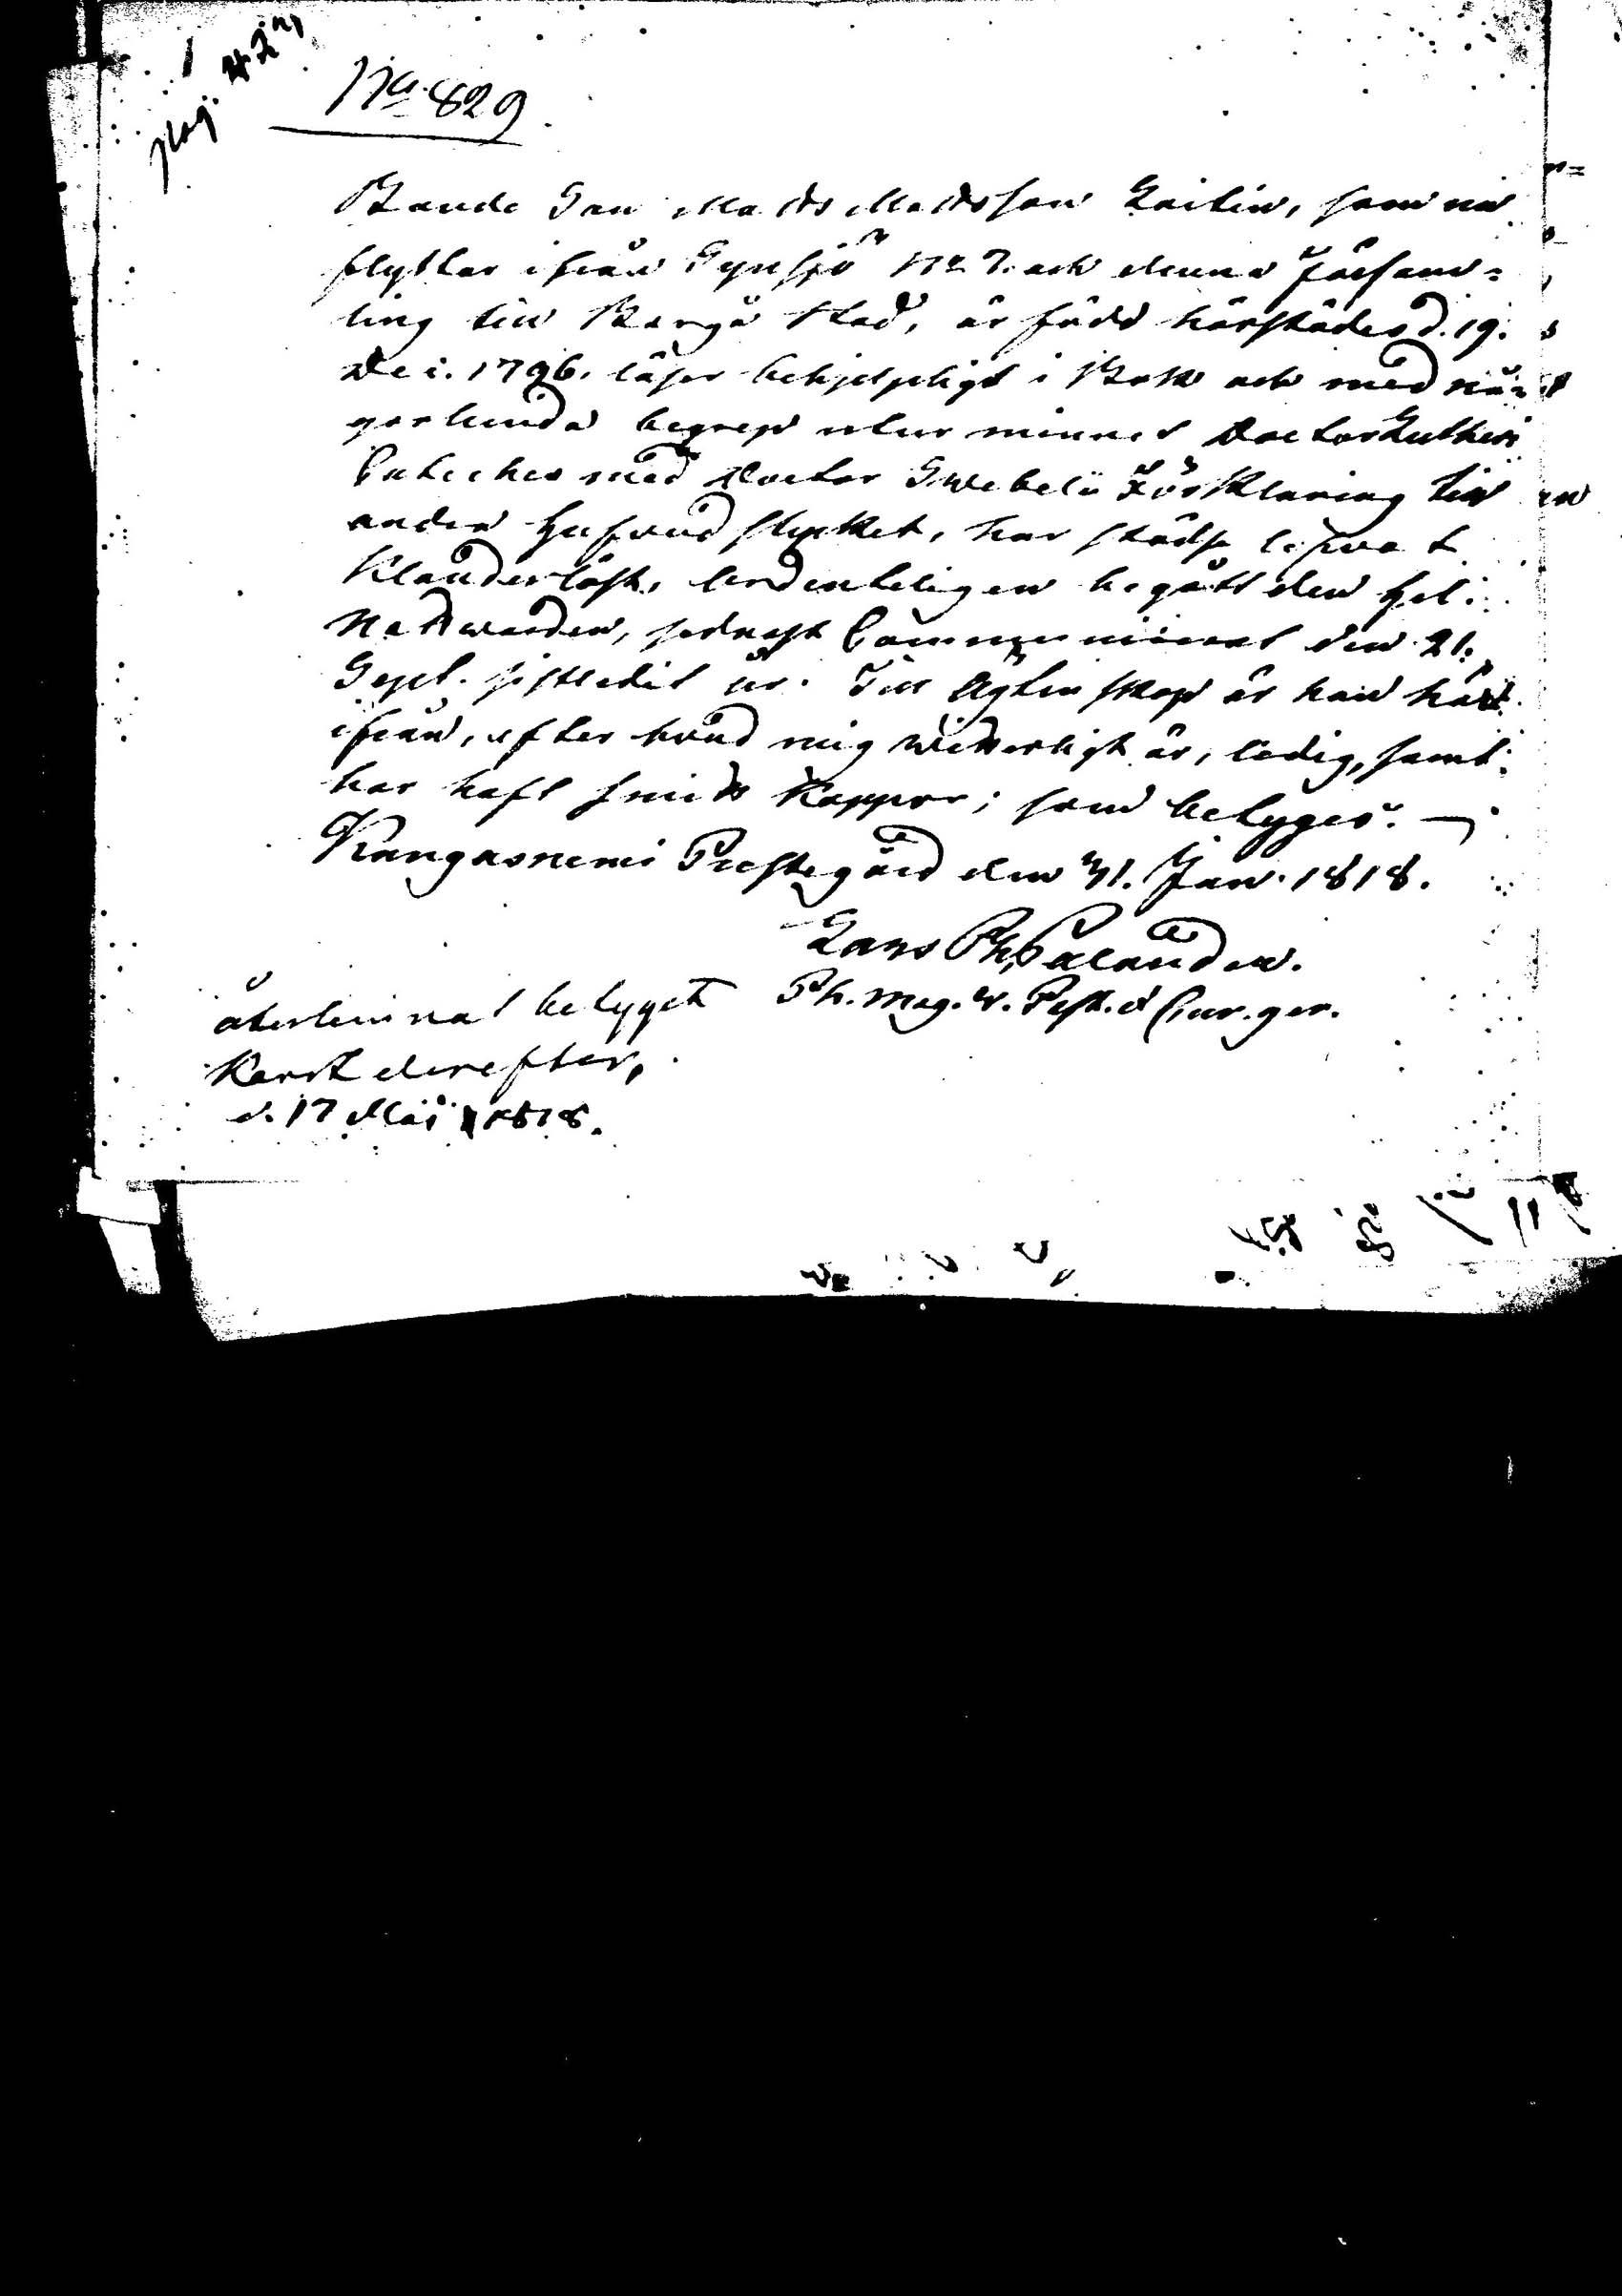 No. 829
Bonde Son Matts Mattsson Laitin, som nu
flyttar ifrån Synsjö No 7. och denna Församˍ
ling till Borgå Stad, är född härstädes d. 19.
Dec. 1796. läser behjelpligt i Bok och med nå-
gorlunda begrep utur minnet Doctor Lutheri
Cateches med Doctor Swebelii Förklaring till
andra Hufvud stycket, har städse lefvat
Klanderlöst, ordenteligen begått den Hel.
Nattvarden, sednast Communicerat den 21.
Sept. sistledit år. Till Ägtenskap är han här
ifrån, efter hvad mig vitterligt är, ledig, samt
har haft Smitt Koppor; som betygas.
Kangasniemi Prestegård den 31. Jan. 1818.
Lars Ph. Palander.
Ph. Mag. V. Past. & Cur. ger.
återlemnat betyget
Kort derefter,
d. 17 Maj 1818.